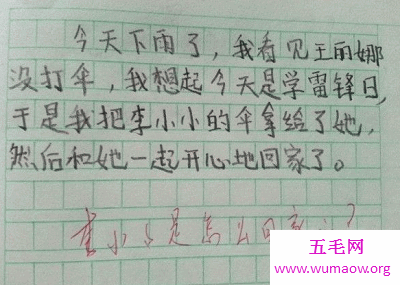 今天下雨了，我看见王丽娜
没打伞，我想起今天是学雷锋日，
于是我把李小小的伞拿给了她，
然后和她一起开心地回家了。
李小小是怎么回家的？
五毛网
www.wumaow.org